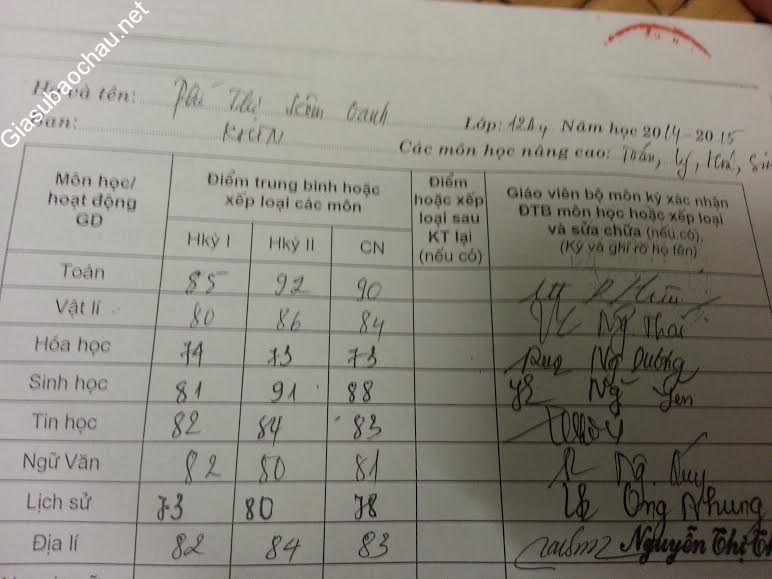 Giasubaochau.net
Họ và tên: Phí Thị Kim Oanh Lớp: 12A4 Năm học 2014-2015
Ban: KHTN Các môn học nâng cao: Toán, Lý, Hoá, Sin
Môn học/ hoạt động GD
Điểm trung bình hoặc xếp loại các môn
Hkỳ I Hkỳ II CN
Điểm hoặc xếp loại sau KT lại (nếu có)
Giáo viên bộ môn ký xác nhận
ĐTB môn học hoặc xếp loại
và sửa chữa (nếu có).
(Ký và ghi rõ họ tên)
Toán 85 92 90
Vật lí 80 86 84 Ng Thái
Hóa học 74 73 73 Ng Dương
Sinh học 81 91 88 Ng Yen
Tin học 82 84 83
Ngữ Văn 82 80 81 Ng. Quy
Lịch sử 73 80 78 Ong Nhung
Địa lí 82 84 83 Nguyễn Thị